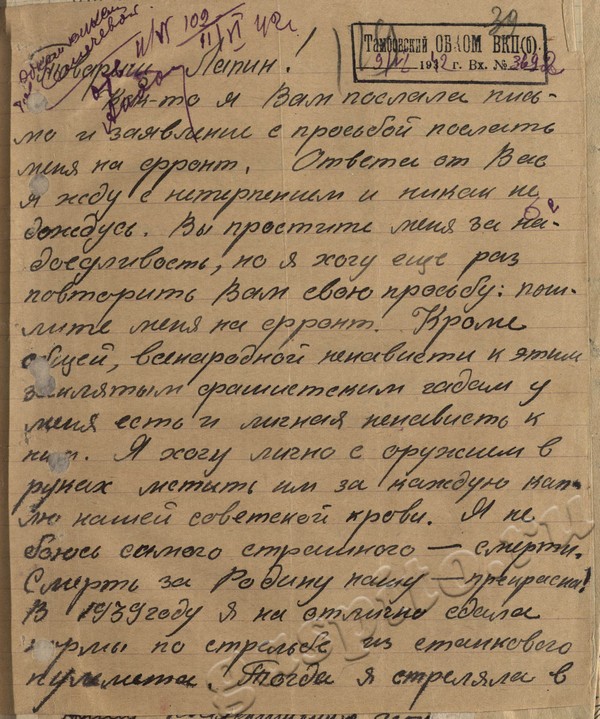 39
Тамбовский ОБКОМ ВКП(б).
9/VI 1942 г. Вх. № 3692
11/VI 42г.
Товарищ Лапин!
Как-то я Вам послала пись-
мо и заявление с просьбой послать
меня на фронт. Ответа от Вас
я жду с нетерпением и никак не
дождусь. Вы простите меня за на-
доедливость, но я хочу еще раз
повторить Вам свою просьбу: пош-
лите меня на фронт. Кроме
общей, всенародной ненависти к этим
заклятым фашистским гадам у
меня есть и личная ненависть к
ним. Я хочу лично с оружием в
руках мстить им за каждую кап-
лю нашей советской крови. Я не
боюсь самого страшного — смерти.
Смерть за Родину нашу — прекрасна!
В 1939 году я на отлично сдала
нормы по стрельбе из станкового
пулемета. Тогда я стреляла в